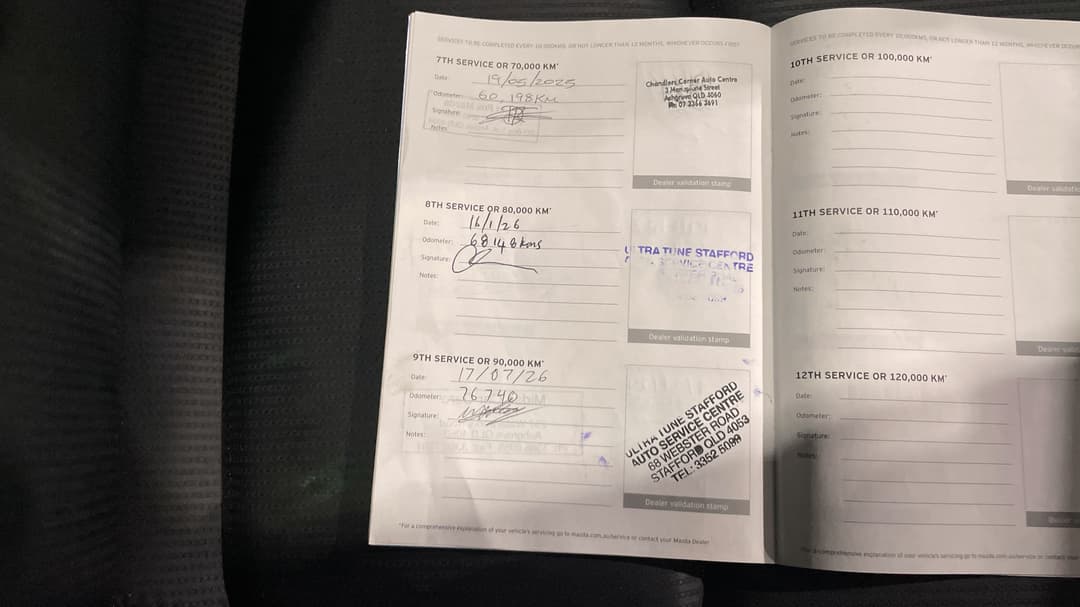 SERVICES TO BE COMPLETED EVERY 10,000KMS, OR NOT LONGER THAN 12 MONTHS, WHICHEVER OCCURS FIRST
7TH SERVICE OR 70,000 KM*
Date: 19/05/2025
Odometer: 60,198KM
Signature:
Notes:
Chandlers Corner Auto Centre
Street
Ashgrove QLD 4060
Ph: 07 3366 3691
Dealer validation stamp
8TH SERVICE OR 80,000 KM*
Date: 16/1/26
Odometer: 68148 kms
Signature:
Notes:
ULTRA TUNE STAFFORD
SERVICE CENTRE
Dealer validation stamp
9TH SERVICE OR 90,000 KM*
Date: 17/07/26
Odometer: 76740
Signature:
Notes:
ULTRA TUNE STAFFORD
AUTO SERVICE CENTRE
68 WEBSTER ROAD
STAFFORD QLD 4053
TEL: 3352 5099
Dealer validation stamp
*For a comprehensive explanation of your vehicle's servicing go to mazda.com.au/service or contact your Mazda Dealer
SERVICES TO BE COMPLETED EVERY 10,000KMS, OR NOT LONGER THAN 12 MONTHS, WHICHEVER OCCURS
10TH SERVICE OR 100,000 KM*
Date:
Odometer:
Signature:
Notes:
Dealer validation
11TH SERVICE OR 110,000 KM*
Date:
Odometer:
Signature:
Notes:
Dealer
12TH SERVICE OR 120,000 KM*
Date:
Odometer:
Signature:
Notes:
Dealer
*For a comprehensive explanation of your vehicle's servicing go to mazda.com.au/service or contact your